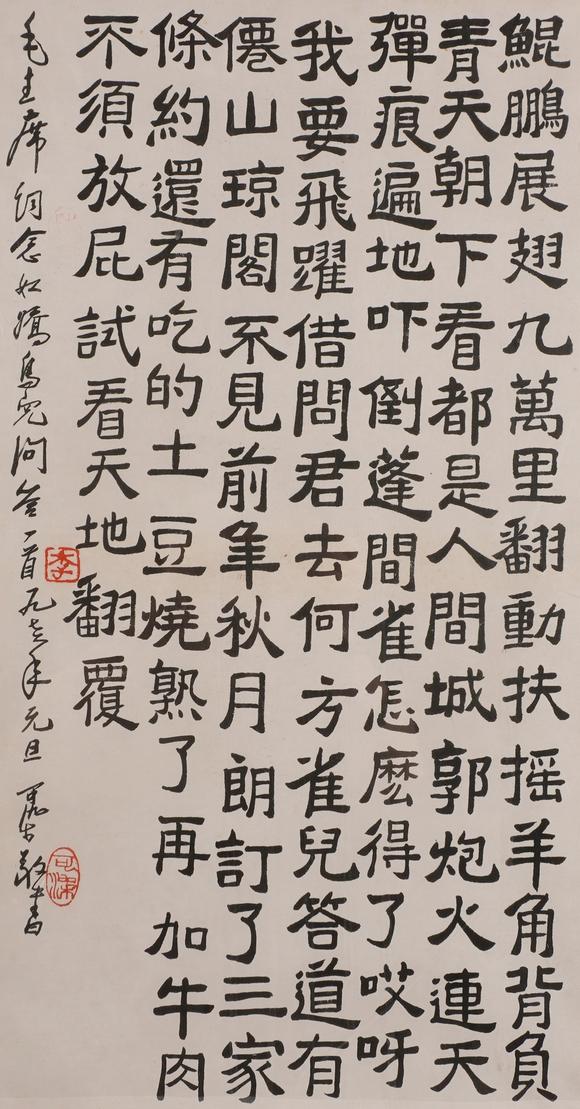 鯤鵬展翅九萬里翻動扶摇羊角背負
青天朝下看都是人間城郭炮火連天
彈痕遍地吓倒蓬間雀怎麽得了哎呀
我要飛躍借問君去何方雀兒答道有
僊山琼閣不見前年秋月朗訂了三家
條約還有吃的土豆燒熟了再加牛肉
不須放屁試看天地翻覆
毛主席詞念奴嬌鳥兒問答一首 年元旦 敬書
李